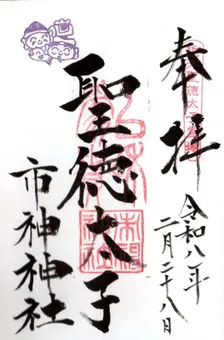 奉拝
令和八年
二月二十八日
聖徳太子
市神神社